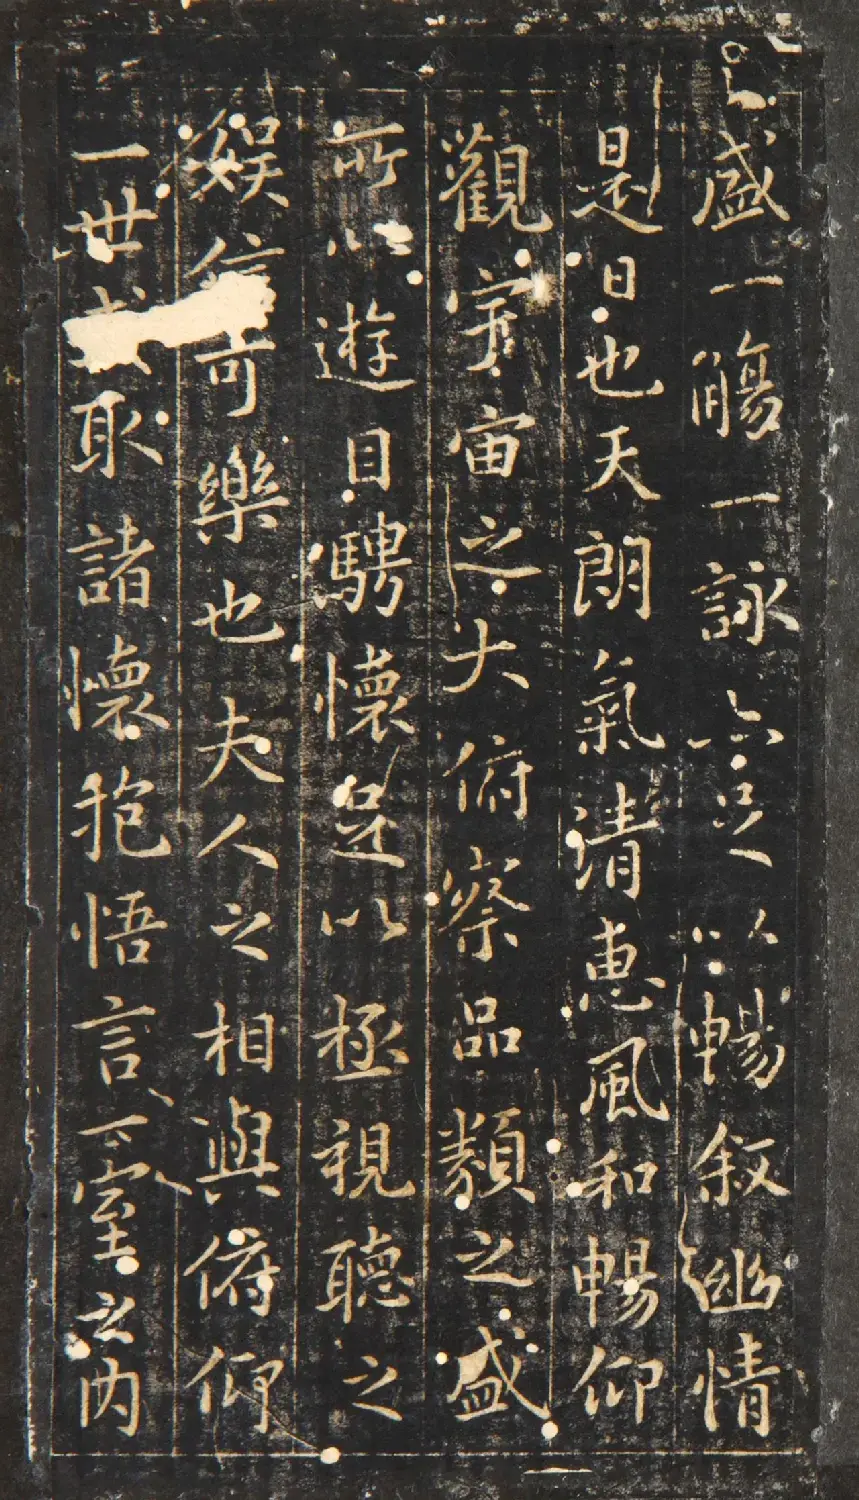 盛一觴一詠亦足以暢叙幽情
是日也天朗氣清惠風和暢仰
觀宇宙之大俯察品類之盛
所以遊目騁懷足以極視聽之
娛信可樂也夫人之相與俯仰
一世取諸懷抱悟言一室之内